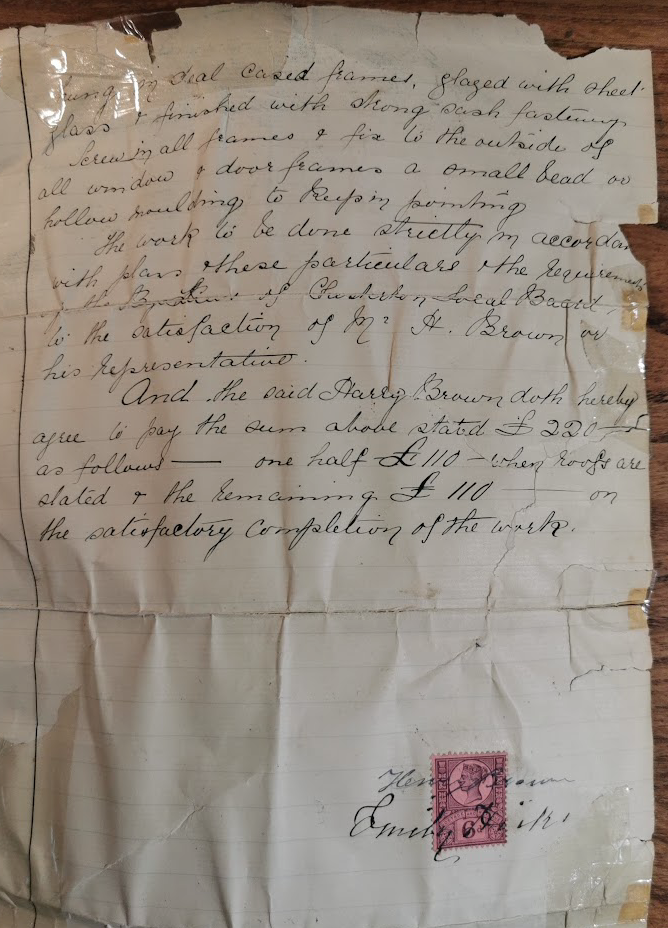 hung in deal cased frames, glazed with sheet
glass & finished with strong sash fastenings
Screw in all frames & fix to the outside of
all window & door frames a small bead or
hollow moulding to keep in pointing
The work to be done strictly in accordan
with plans & these particulars & the requirements
of the of Chesterton Local Board,
to the satisfaction of Mr H. Brown or
his representative.
And the said Harry Brown doth hereby
agree to pay the sum above stated £220
as follows — one half £110 — when roofs are
slated & the remaining £110 — on
the satisfactory completion of the work.
Brown
Emily
6d